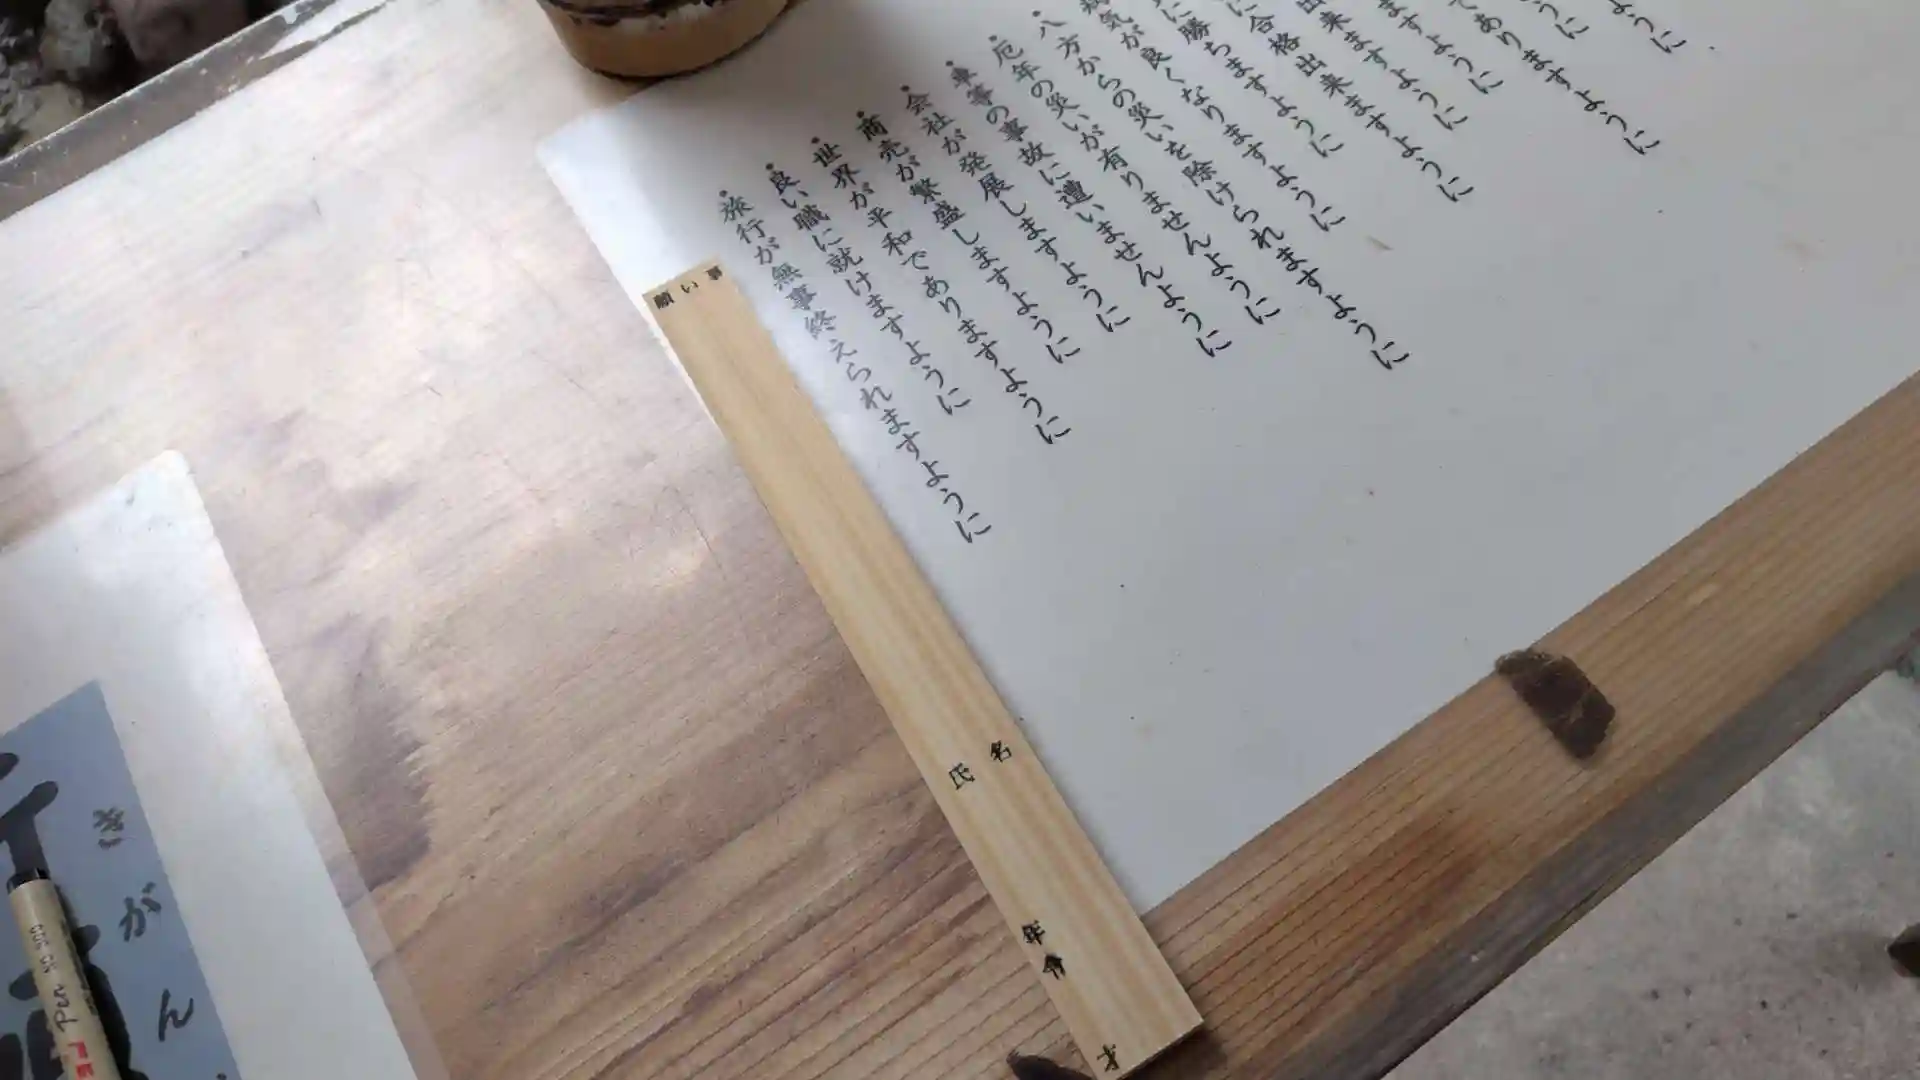 ように
うに
でありますように
ますように
出来ますように
に合格出来ますように
に勝ちますように
病気が良くなりますように
・八方からの災いを除けられますように
・厄年の災いが有りませんように
・車等の事故に遭いませんように
・会社が発展しますように
・商売が繁盛しますように
・世界が平和でありますように
・良い職に就けますように
・旅行が無事終えられますように
願い事
氏名
年令
才
きがん
Pen